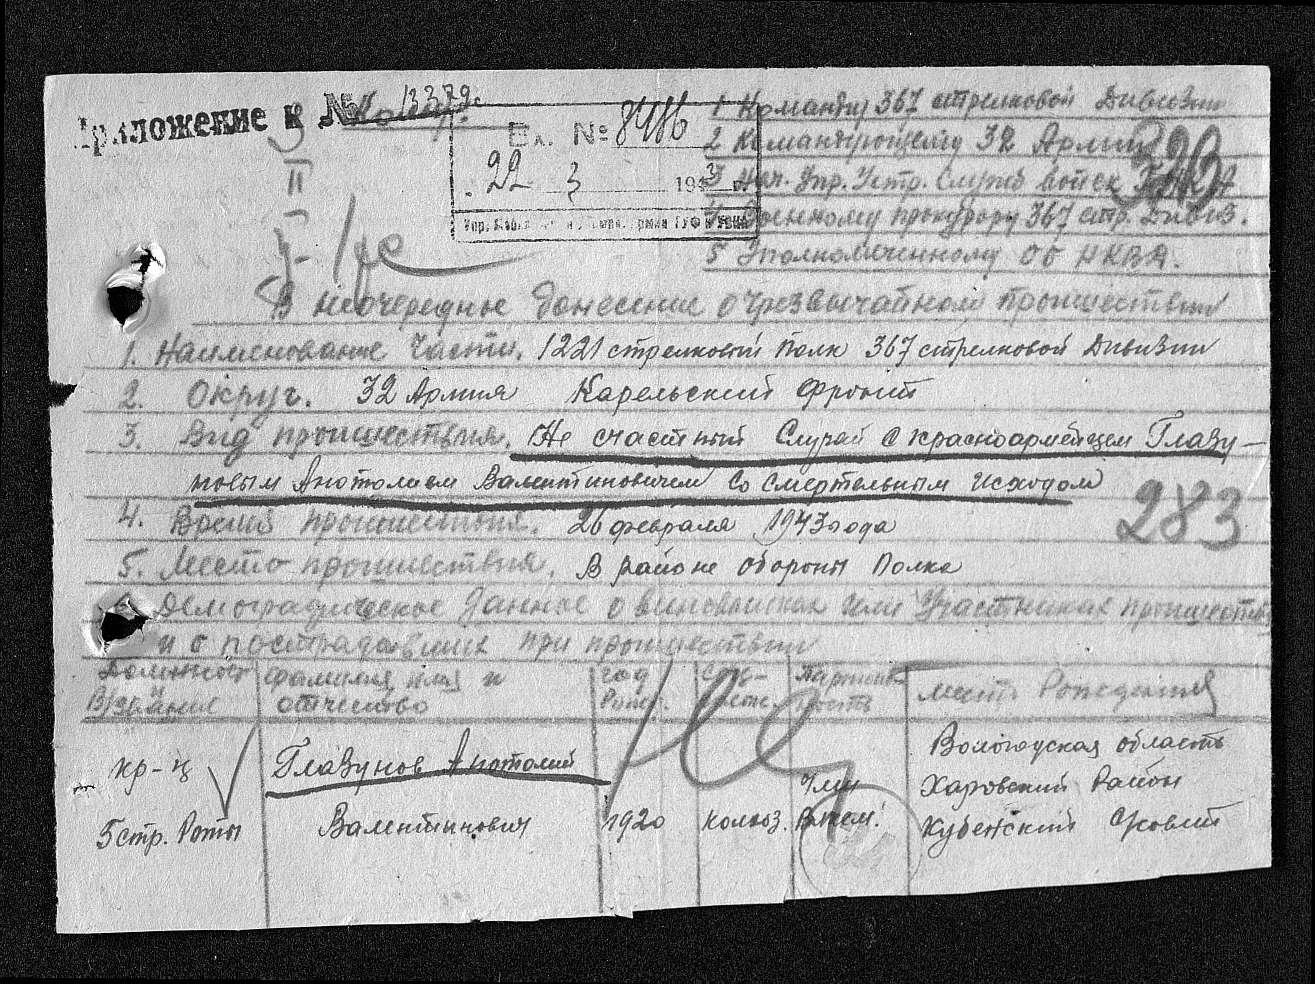 Приложение к № 13379с
Вх. № 8486
22 3 1943 г.
1 Командиру 367 стрелковой Дивизии
2 Командующему 32 Армии
3 Нач. Упр. Устр. Служб войск
4 Военному прокурору 367 стр. Дивиз.
5 Уполномоченному ОО НКВД.
320
Внеочередное донесение о чрезвычайном происшествии
1. Наименование части. 1221 стрелковый Полк 367 стрелковой Дивизии
2. Округ. 32 Армия Карельский Фронт
3. Вид происшествия. Не счастный Случай с красноармейцем Глазу-
новым Анатолием Валентиновичем со смертельным исходом
4. Время происшествия. 26 февраля 1943 года
283
5. Место происшествия. В районе обороны Полка
6 Демографическое данное о виновниках или участниках происшеств
и о пострадавших при происшествии
Должность В/звание
фамилия имя и отчество
год рожд.
Партий-ность
место Рождения
кр-ц
5 стр. Роты
Глазунов Анатолий
Валентинович
1920
колхоз.
Член
Влксм.
Вологодская область
Харовский Район
Кубенский С/совет